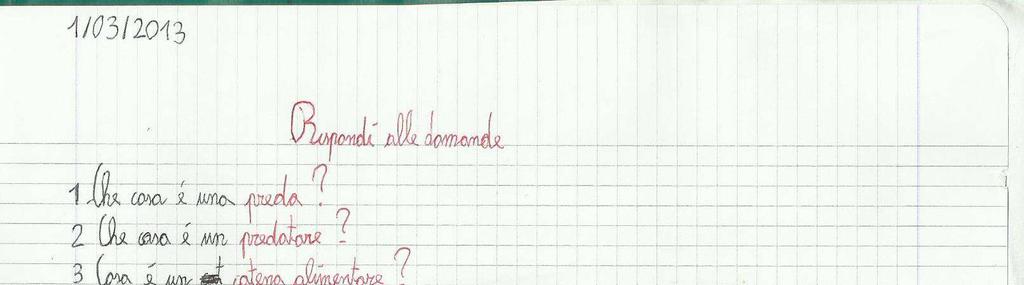 1/03/2013
Rispondi alle domande
1 Che cosa è una preda?
2 Che cosa è un predatore?
3 Cosa é un catena alimentare?